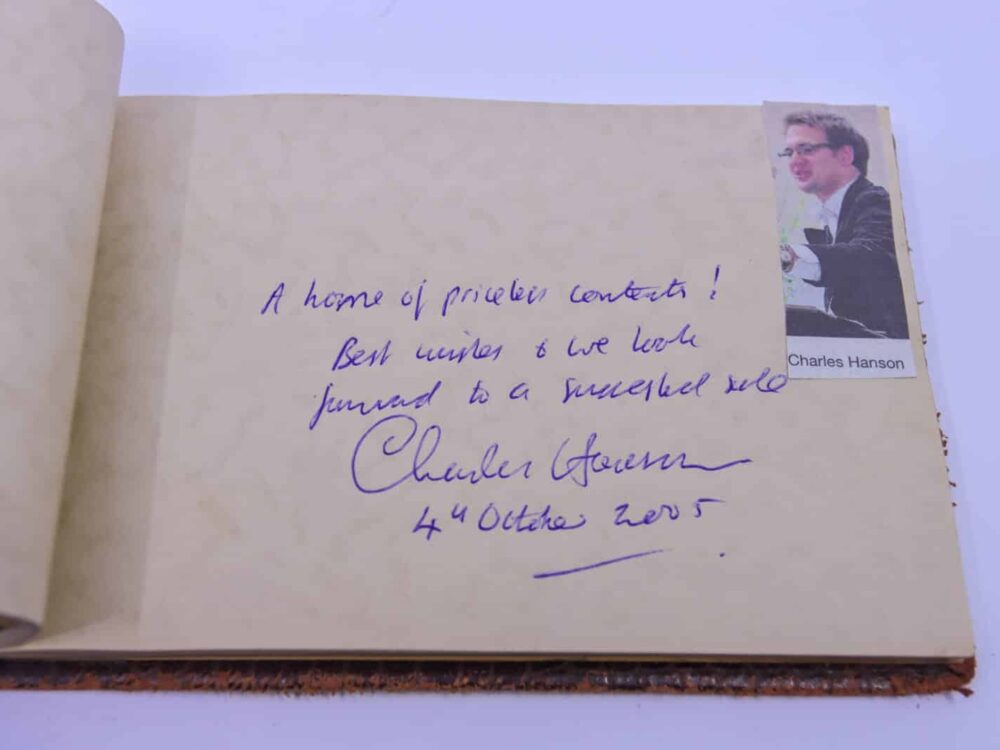 A home of priceless contents!
Best wishes & we look
forward to a successful sale
Charles Hanson
4th October 2005
Charles Hanson